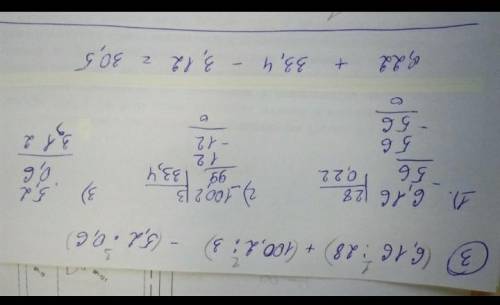 3 (6,16 : 28) + (100,2 : 3) - (5,2 · 0,6)
1 2 3
1). 6,16 | 28
- 56 | 0,22
56
- 56
0
2) 100,2 | 3
99 | 33,4
12
- 12
0
3) 5,2
0,6
3,12
0,22 + 33,4 - 3,12 = 30,5